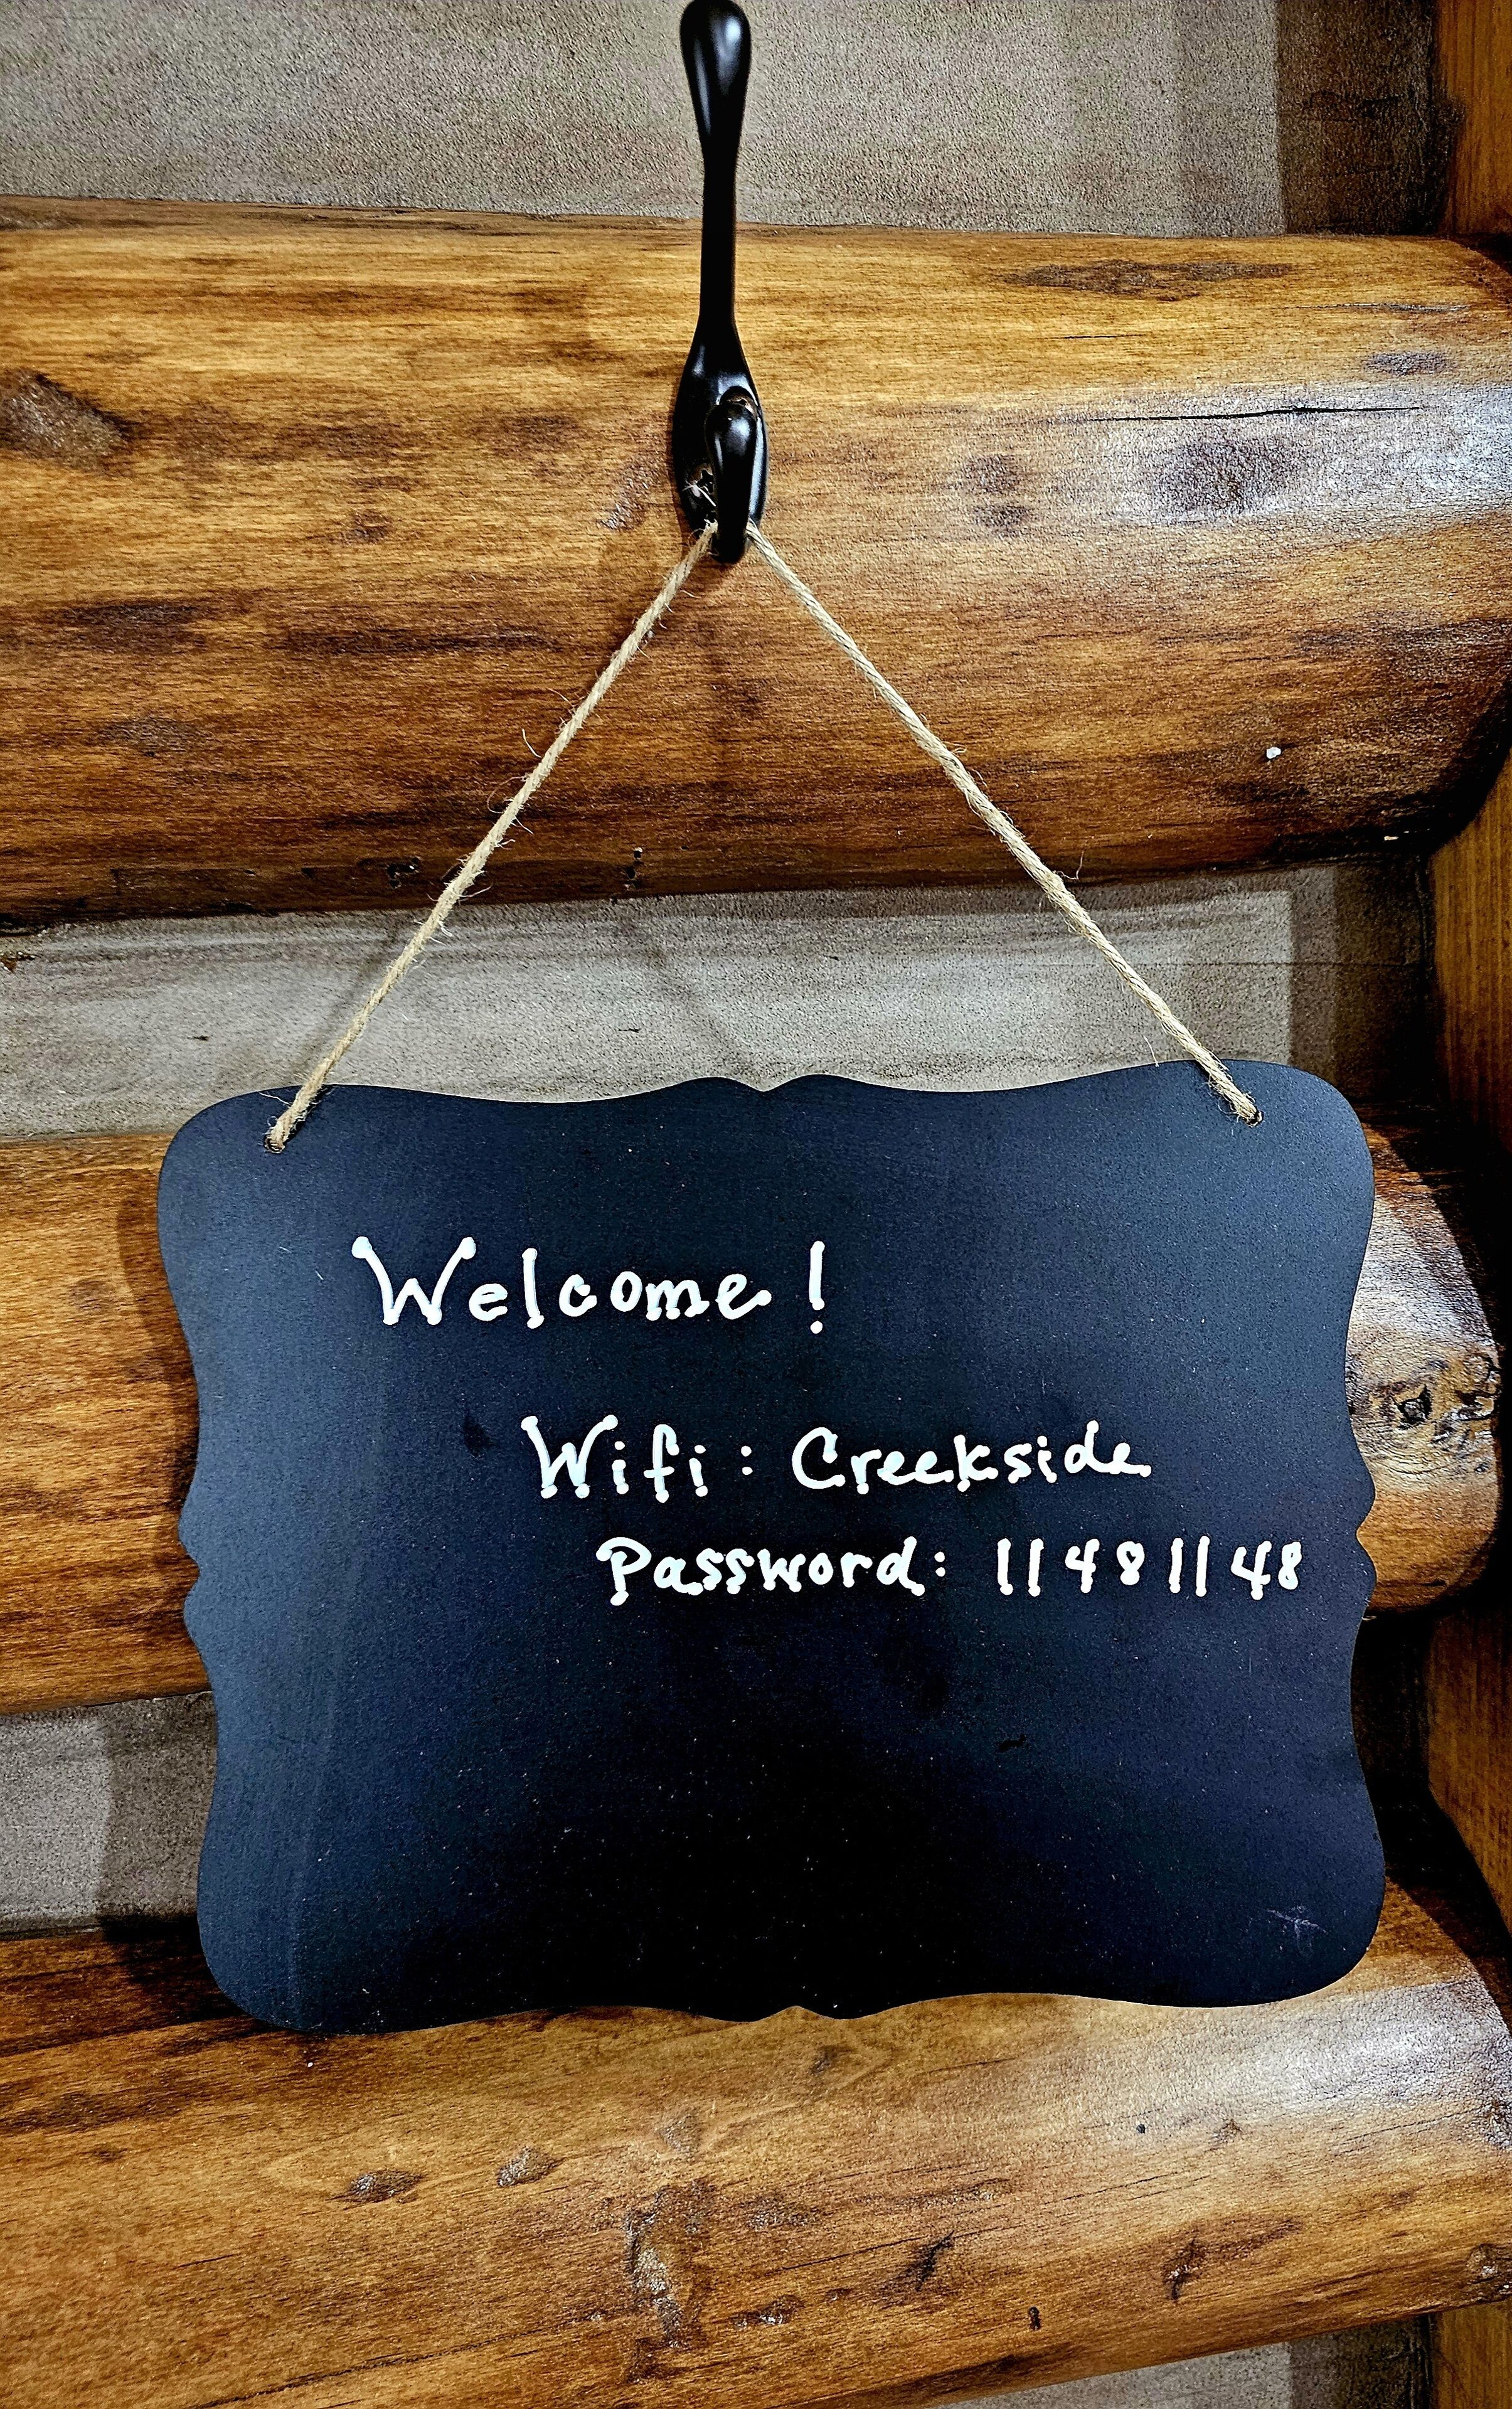 Welcome!
Wifi: Creekside
Password: 11481148